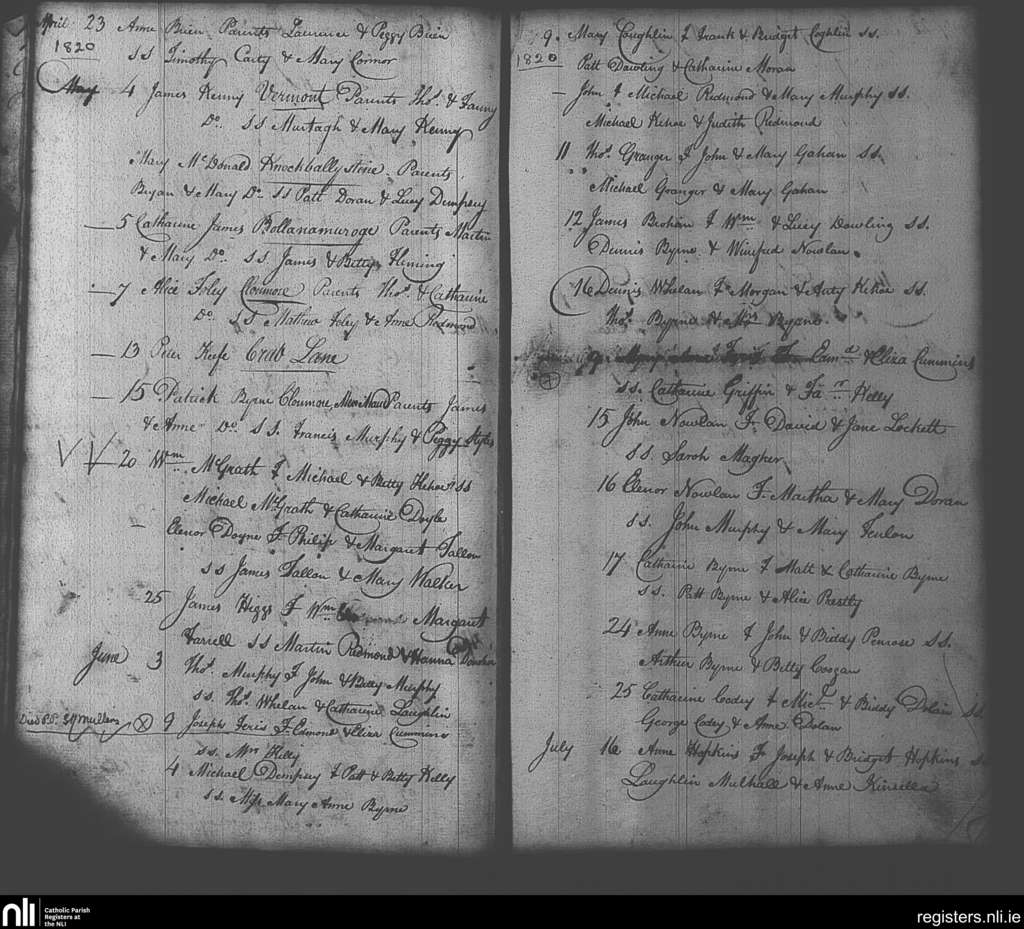 April 23 Anne Brien Parents Laurence & Peggy Brien
1820
SS Timothy Carty & Mary Connor
May 4 James Kenny Vermont Parents Thos. & Fanny
Do. SS Murtagh & Mary Kenny
Mary McDonald Knockballystine Parents
Bryan & Mary Do SS Patt Doran & Lucy Dempsey
5 Catharine James Bollanamuroge Parents Martin
& Mary Do. SS James & Betty Fleming
7 Alice Foley Clonmore Parents Thos. & Catharine
Do. SS Mathew Foley & Anne Redmond
13 Peter Keefe Crab Lane
15 Patrick Byrne Clonmore, Parents James
& Anne Do. SS. Francis Murphy & Peggy Styles
20 Wm McGrath F Michael & Betty Kehoe SS
Michael McGrath & Catharine Doyle
Elenor Doyne F Philip & Margaret Fallon
SS James Fallon & Mary Walker
25 James Higgs F Wm Margaret
Farrell SS Martin Redmond & Hanna
June 3 Thos. Murphy F John & Betty Murphy
SS. Thos. Whelan & Catharine Laughlin
Died P.P. St Mullens
9 Joseph Feris F. Edmond & Eliza Cummins
SS. Kelly
4 Michael Dempsey F Patt & Betty Kelly
SS. Miss Mary Anne Byrne
9. Mary Coughlin F Frank & Bridget Coghlin SS.
1820
Patt Dowling & Catharine Moran
John F Michael Redmond & Mary Murphy SS.
Michael Kehoe & Judith Redmond
11 Thos. Granger F John & Mary Gahan SS.
Michael Granger & Mary Gahan
12 James F Wm & Lucey Dowling SS.
Dennis Byrne & Winifred Nowlan.
16 Dennis Whelan F Morgan & Kehoe SS.
Thos. Byrne & Byrne.
9. Edmd & Eliza Cummins
SS. Catharine Griffin & Kelly
15 John Nowlan F. David & Jane Lockett
SS. Sarah Magher
16 Elenor Nowlan F. Martha & Mary Doran
SS. John Murphy & Mary Fenlon
17 Catharine Byrne F Matt & Catharine Byrne
SS. Patt Byrne & Alice Prestly
24 Anne Byrne F John & Biddy Penrose SS.
Arthur Byrne & Betty Coogan
25 Catharine Codey F & Biddy Dolan SS.
George Codey & Anne Dolan
July 16 Anne Hopkins F Joseph & Bridget Hopkins
Laughlin Mulhall & Anne Kinsella
nli
Catholic Parish
Registers at
the NLI
registers.nli.ie